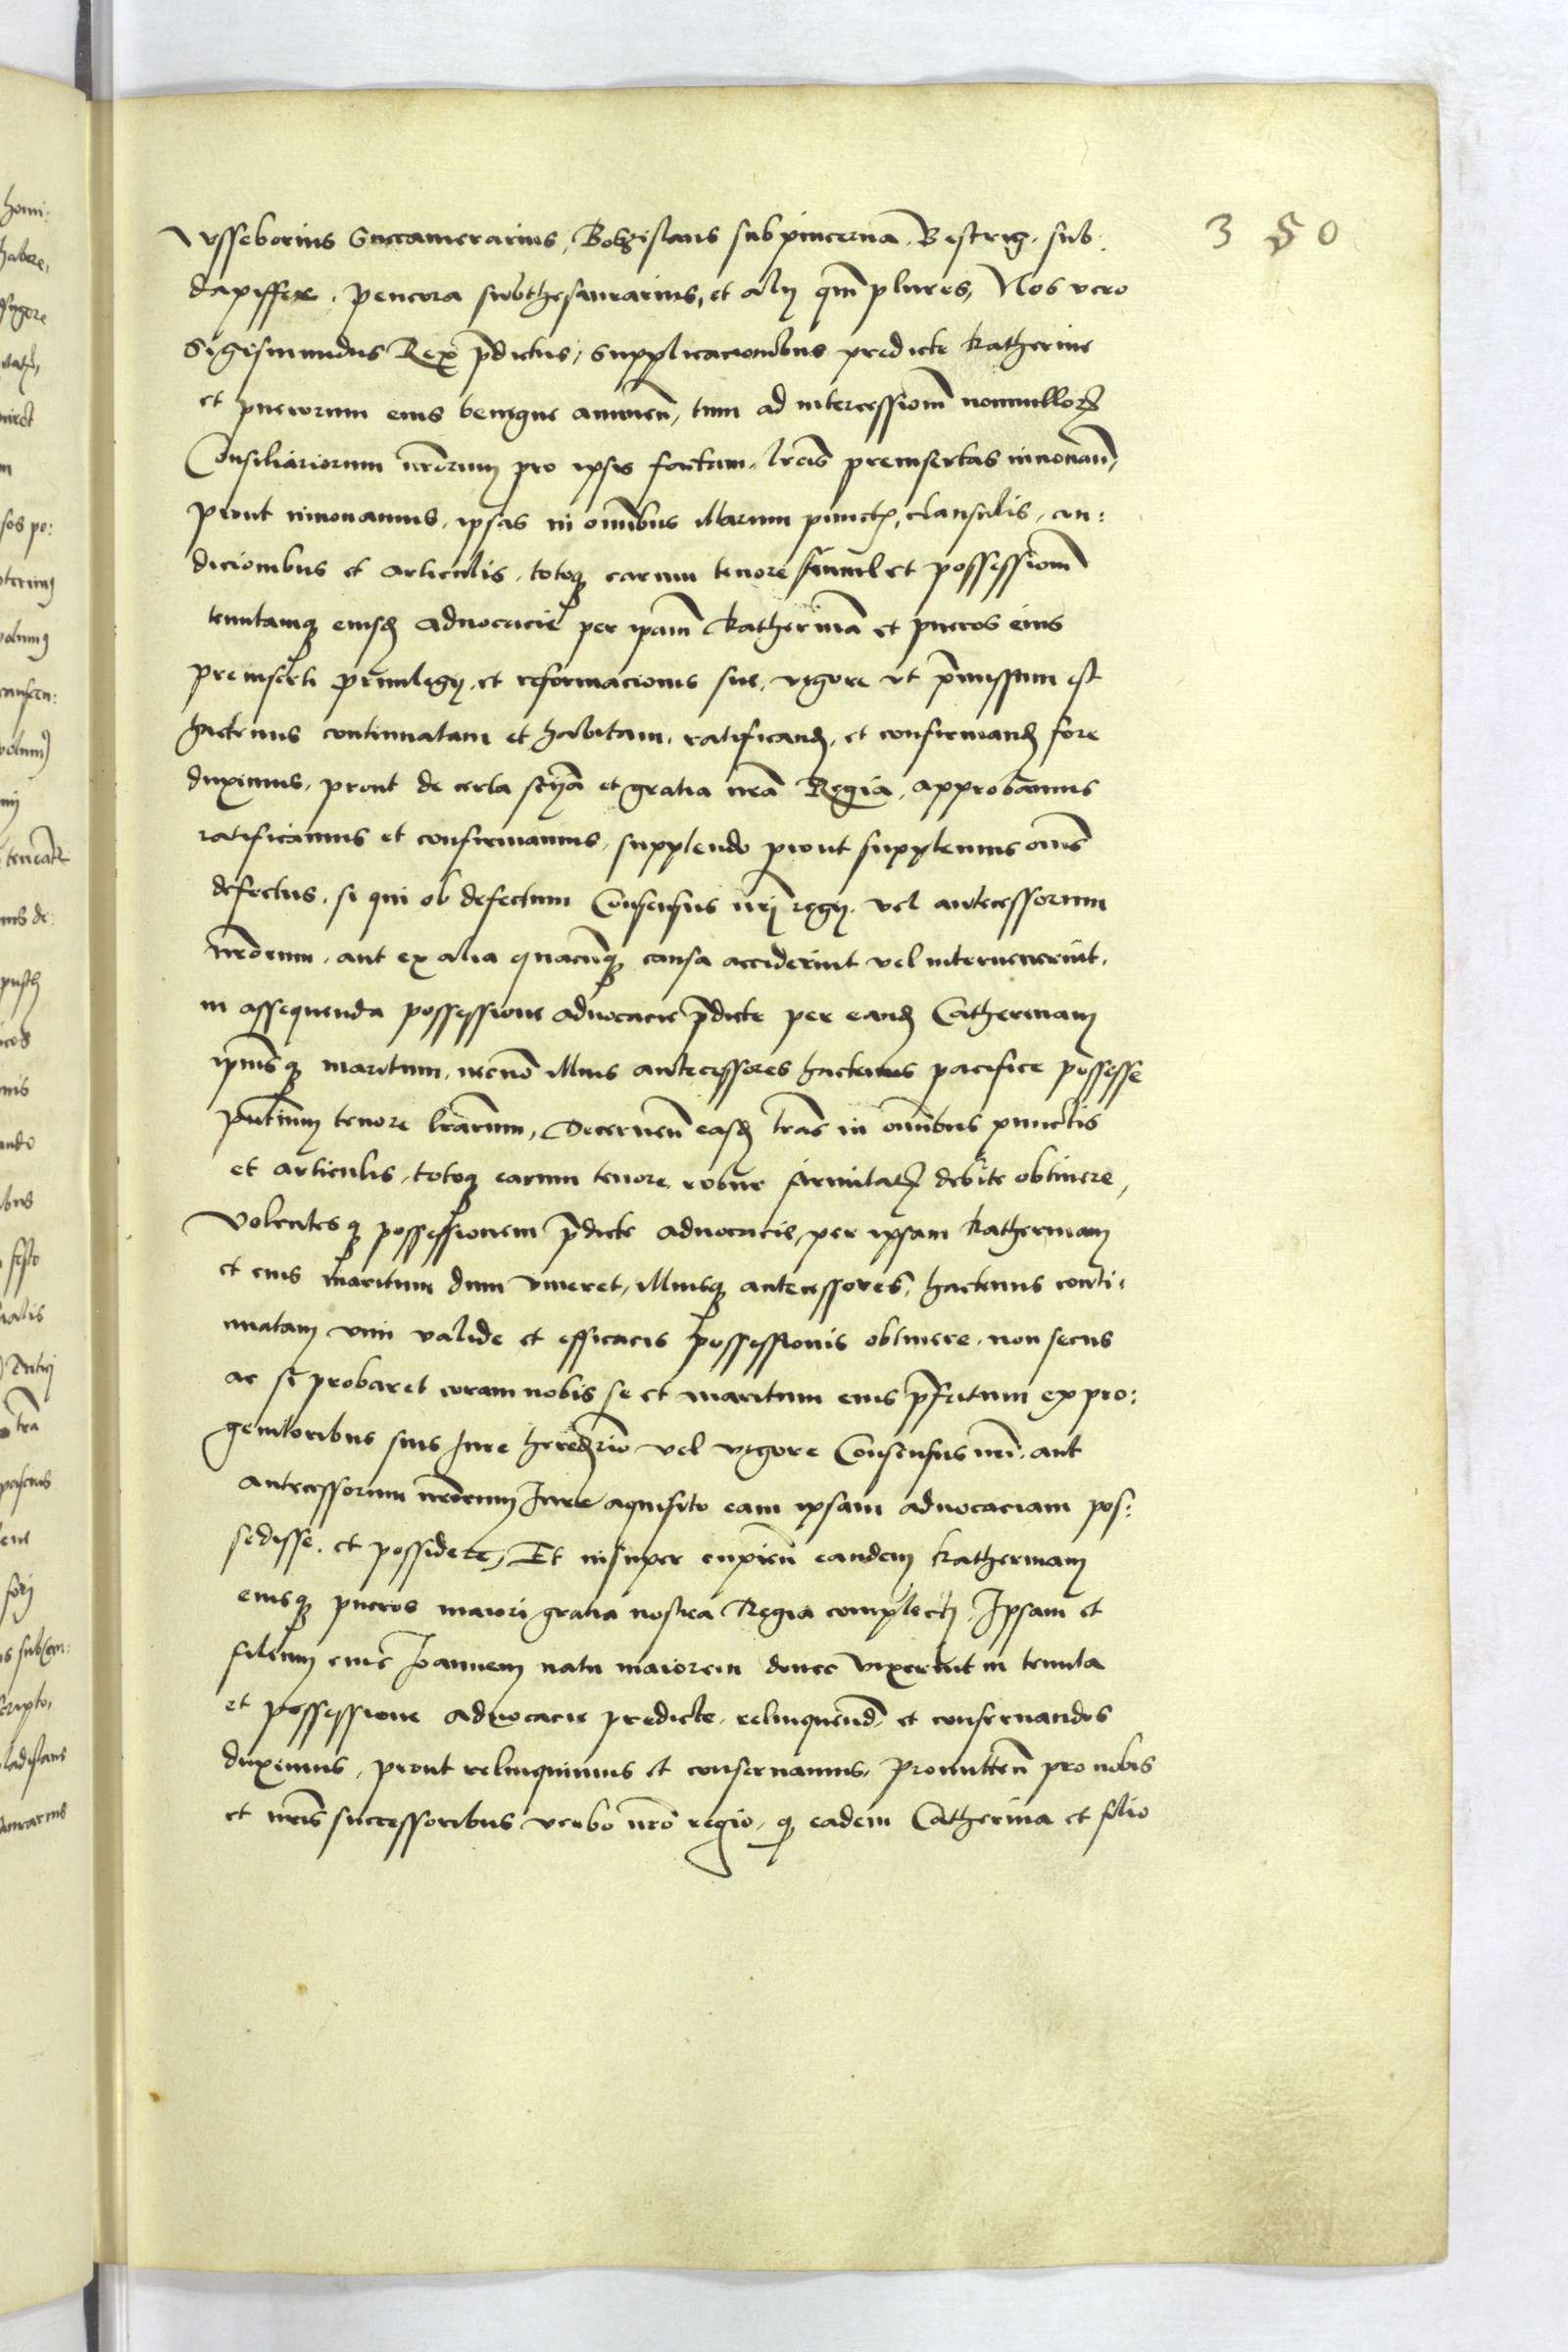 350
Vsseborius Succamerarius, Bogzislaus subpincerna, Bestrig, sub:
dapiffer, Pencora subthesaurarius, et alij qm̄ plures, Nos vero
Sigismundus Rex p̄dictus, supplicacionibus predicte Katherine
et puerorum eius benigne annuen̄, tum ad intercessionē nonnulloꝝ
Consiliariorum nr̄orum pro ipsis factam, lrās preinsertas innouan̄,
prout innouamus, ipsas in om̄ibus illarum punct̄, clausulis, con:
dicionibus et articulis, totoqꝫ earum tenore simul et possessionē
tenutamqꝫ eiusd̄ aduocacie per ipām Katherinā et pueros eius
preinserti priuilegij, et reformacionis sue, vigore vt p̄missum est
hactenus continuatam et habitam, ratificand̄, et confirmand̄ fore
duximus, prout de certa scīa et gratia nrā Regia, approbamus
ratificamus et confirmamus, supplendo prout supplemus om̄s
defectus, si qui ob defectum Consensus nrī regij, vel antecessorum
nr̄orum, aut ex alia quacūqꝫ causa acciderint vel interuenerint,
in assequenda possessione aduocacie p̄dicte per eand̄ Catherinam
ipsiusqꝫ maritum, necnō illius antecessores hactenus pacifice possesse
pn̄tium tenore lrārum, Decernen̄ easd̄ lrās in om̄ibus punctis
et articulis, totoqꝫ earum tenore robur firmitatꝭ debite obtinere,
Volentesqꝫ possessionem p̄dicte aduocacie, per ipsam Katherinam
et eius maritum dum viueret, illiusqꝫ antecessores, hactenus conti:
nuatam vim valide et efficacis possessionis obtinere, non secus
ac si probaret coram nobis se et maritum eius p̄fatum ex pro:
genitoribus suis Jure hereditario vel vigore Consensus nrī, aut
antecessorum nr̄orum Jure aquisito eam ipsam aduocaciam pos:
sedisse, et possidere, Et insuper cupien̄ eandem Katherinam
eiusqꝫ pueros maiori gratia nostra Regia complecti, Ipsam et
filium eius Joannem natu maiorem donec vixerint in tenuta
et possessione aduocacie predicte, relinquend̄, et conseruandos
duximus, prout relinquimus et conseruamus, Promitten̄ pro nobis
et nrīs successoribus verbo nrō regio, qꝫ eadem Catherina et filio